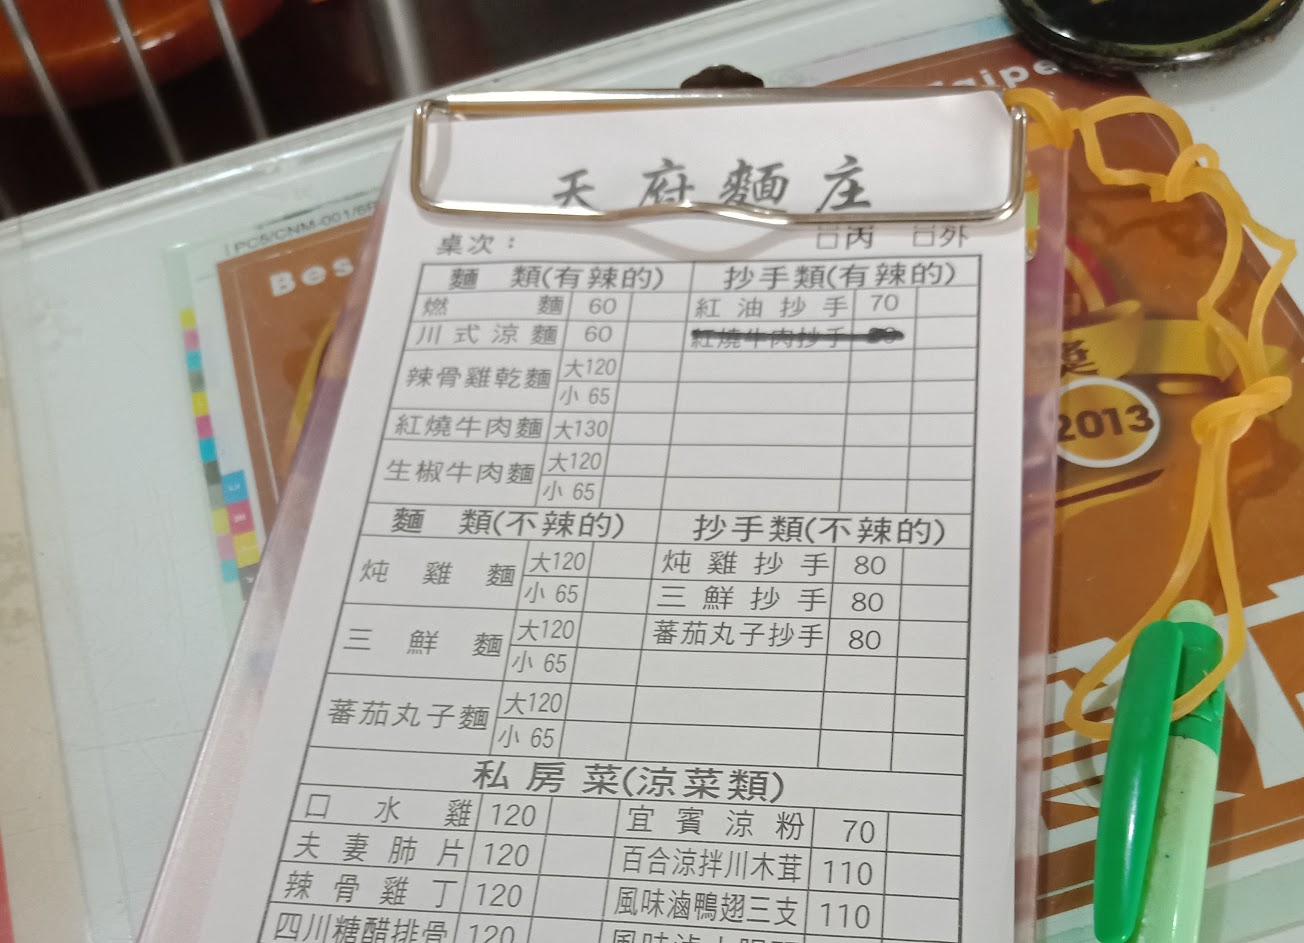 PC5/CNM-001/6P
Bes
aipe
2013
天府麵庄
桌次： 口內 口外
麵類(有辣的) 抄手類(有辣的)
燃麵 60 紅油抄手 70
川式涼麵 60 紅燒牛肉抄手
辣骨雞乾麵 大120
小65
紅燒牛肉麵 大130
生椒牛肉麵 大120
小65
麵類(不辣的) 抄手類(不辣的)
炖雞麵 大120 炖雞抄手 80
小65 三鮮抄手 80
三鮮麵 大120 蕃茄丸子抄手 80
小65
蕃茄丸子麵 大120
小65
私房菜(涼菜類)
口水雞 120 宜賓涼粉 70
夫妻肺片 120 百合涼拌川木茸 110
辣骨雞丁 120 風味滷鴨翅三支 110
四川糖醋排骨 120 風味滷